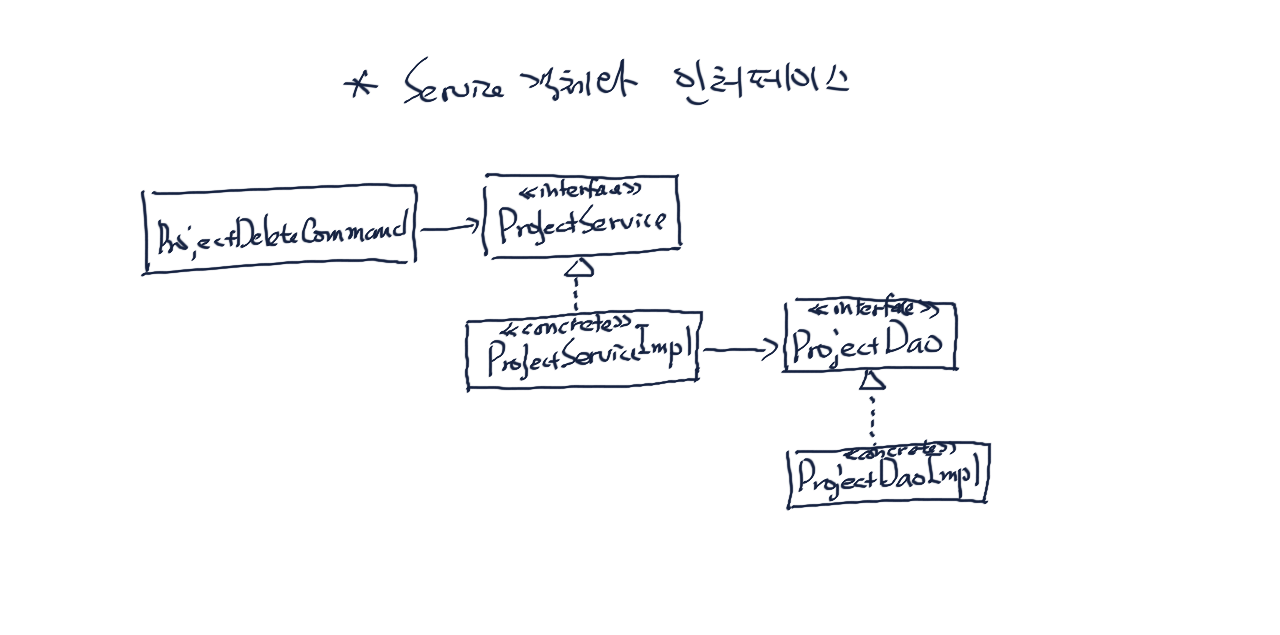 * Service 객체와 인터페이스
<<interface>>
ProjectDeleteCommand
ProjectService
<<concrete>>
ProjectServiceImpl
<<interface>>
ProjectDao
<<concrete>>
ProjectDaoImpl